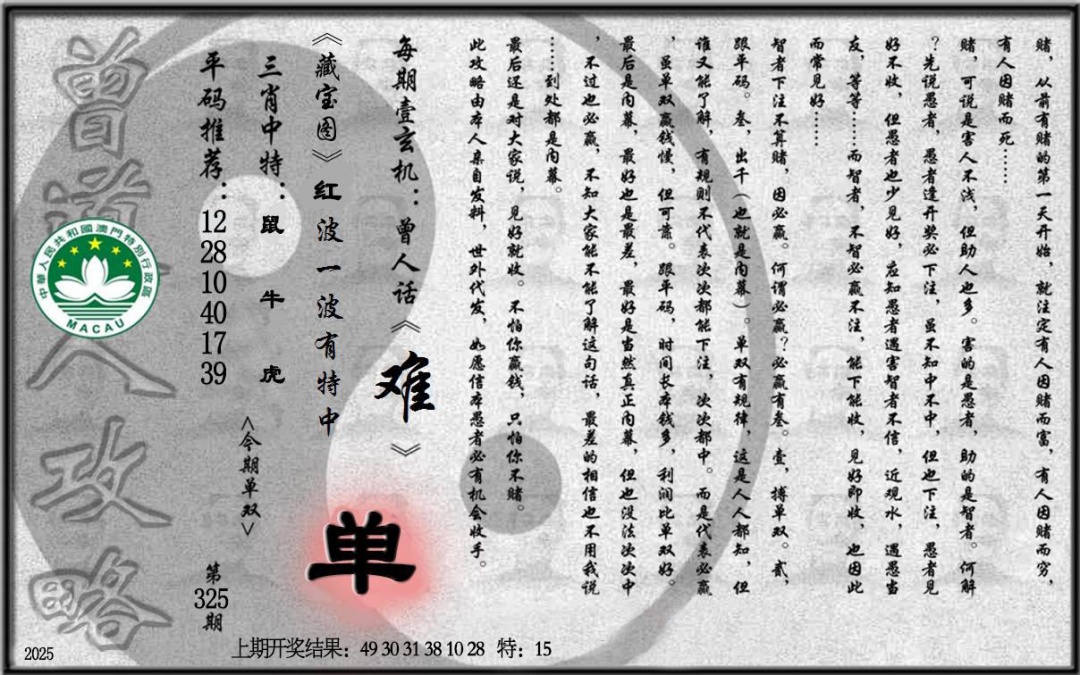 赌，从前有赌的第一天开始，就注定有人因赌而富，有人因赌而穷，
有人因赌而死……
赌，可说是害人不浅，但助人也多。害的是愚者，助的是智者。何解
？先说愚者，愚者逢开奖必下注，虽不知中不中，但也下注，愚者见
好不收，但愚者也少见好，应知愚者遇害智者不信，近观水，遇愚当
友，等等……而智者，不智必赢不注，能下能收，见好即收，也因此
而常见好……
智者下注不算赌，因必赢。何谓必赢？必赢有叁。壹，搏单双。贰，
跟单码。叁，出千（也就是内幕）。单双有规律，这是人人都知，但
谁又能了解，有规则不代表次次都能下注，次次都中。而是代表必赢
，虽单双赢钱慢，但可靠。跟单码，时间长本钱多，利润比单双好。
最后是内幕，最好也是最差，最好是当然真正内幕，但也没法次次中
，不过也必赢，不知大家能不能了解这句话，最差的相信也不用我说
……到处都是内幕。
最后还是对大家说，见好就收。不怕你赢钱，只怕你不赌。
此攻略由本人亲自发料，世外代发，如愿信本愚者必有机会收手。
每期壹玄机：曾人话《难》
《藏宝图》红波一波有特中
单
三肖中特：鼠 牛 虎
<今期单双>
平码推荐：12 28 10 40 17 39
第325期
曾道人攻略
中華人民共和國澳門特別行政區
MACAU
2025
上期开奖结果：49 30 31 38 10 28 特：15